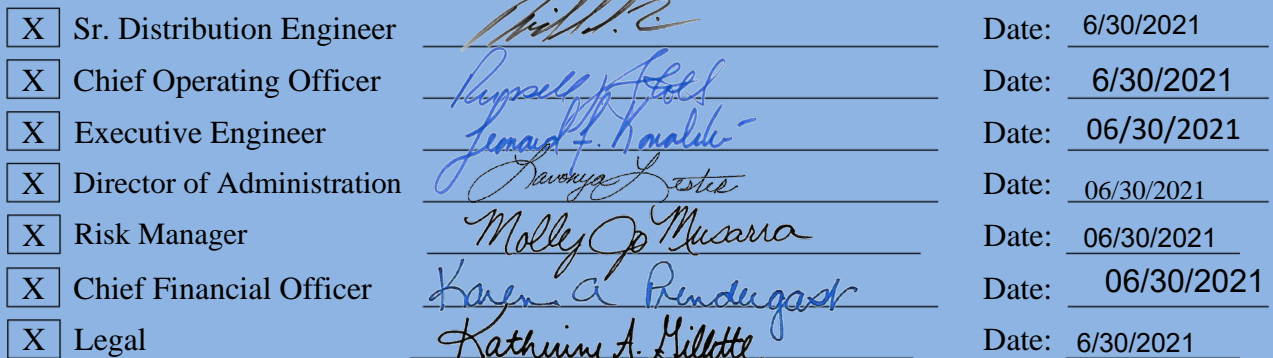 X Sr. Distribution Engineer Date: 6/30/2021
X Chief Operating Officer Russell Date: 6/30/2021
X Executive Engineer Leonard F. Date: 06/30/2021
X Director of Administration Lavonya Lester Date: 06/30/2021
X Risk Manager Molly Jo Musarra Date: 06/30/2021
X Chief Financial Officer Karen A Prendergast Date: 06/30/2021
X Legal Katherine A. Gillette Date: 6/30/2021